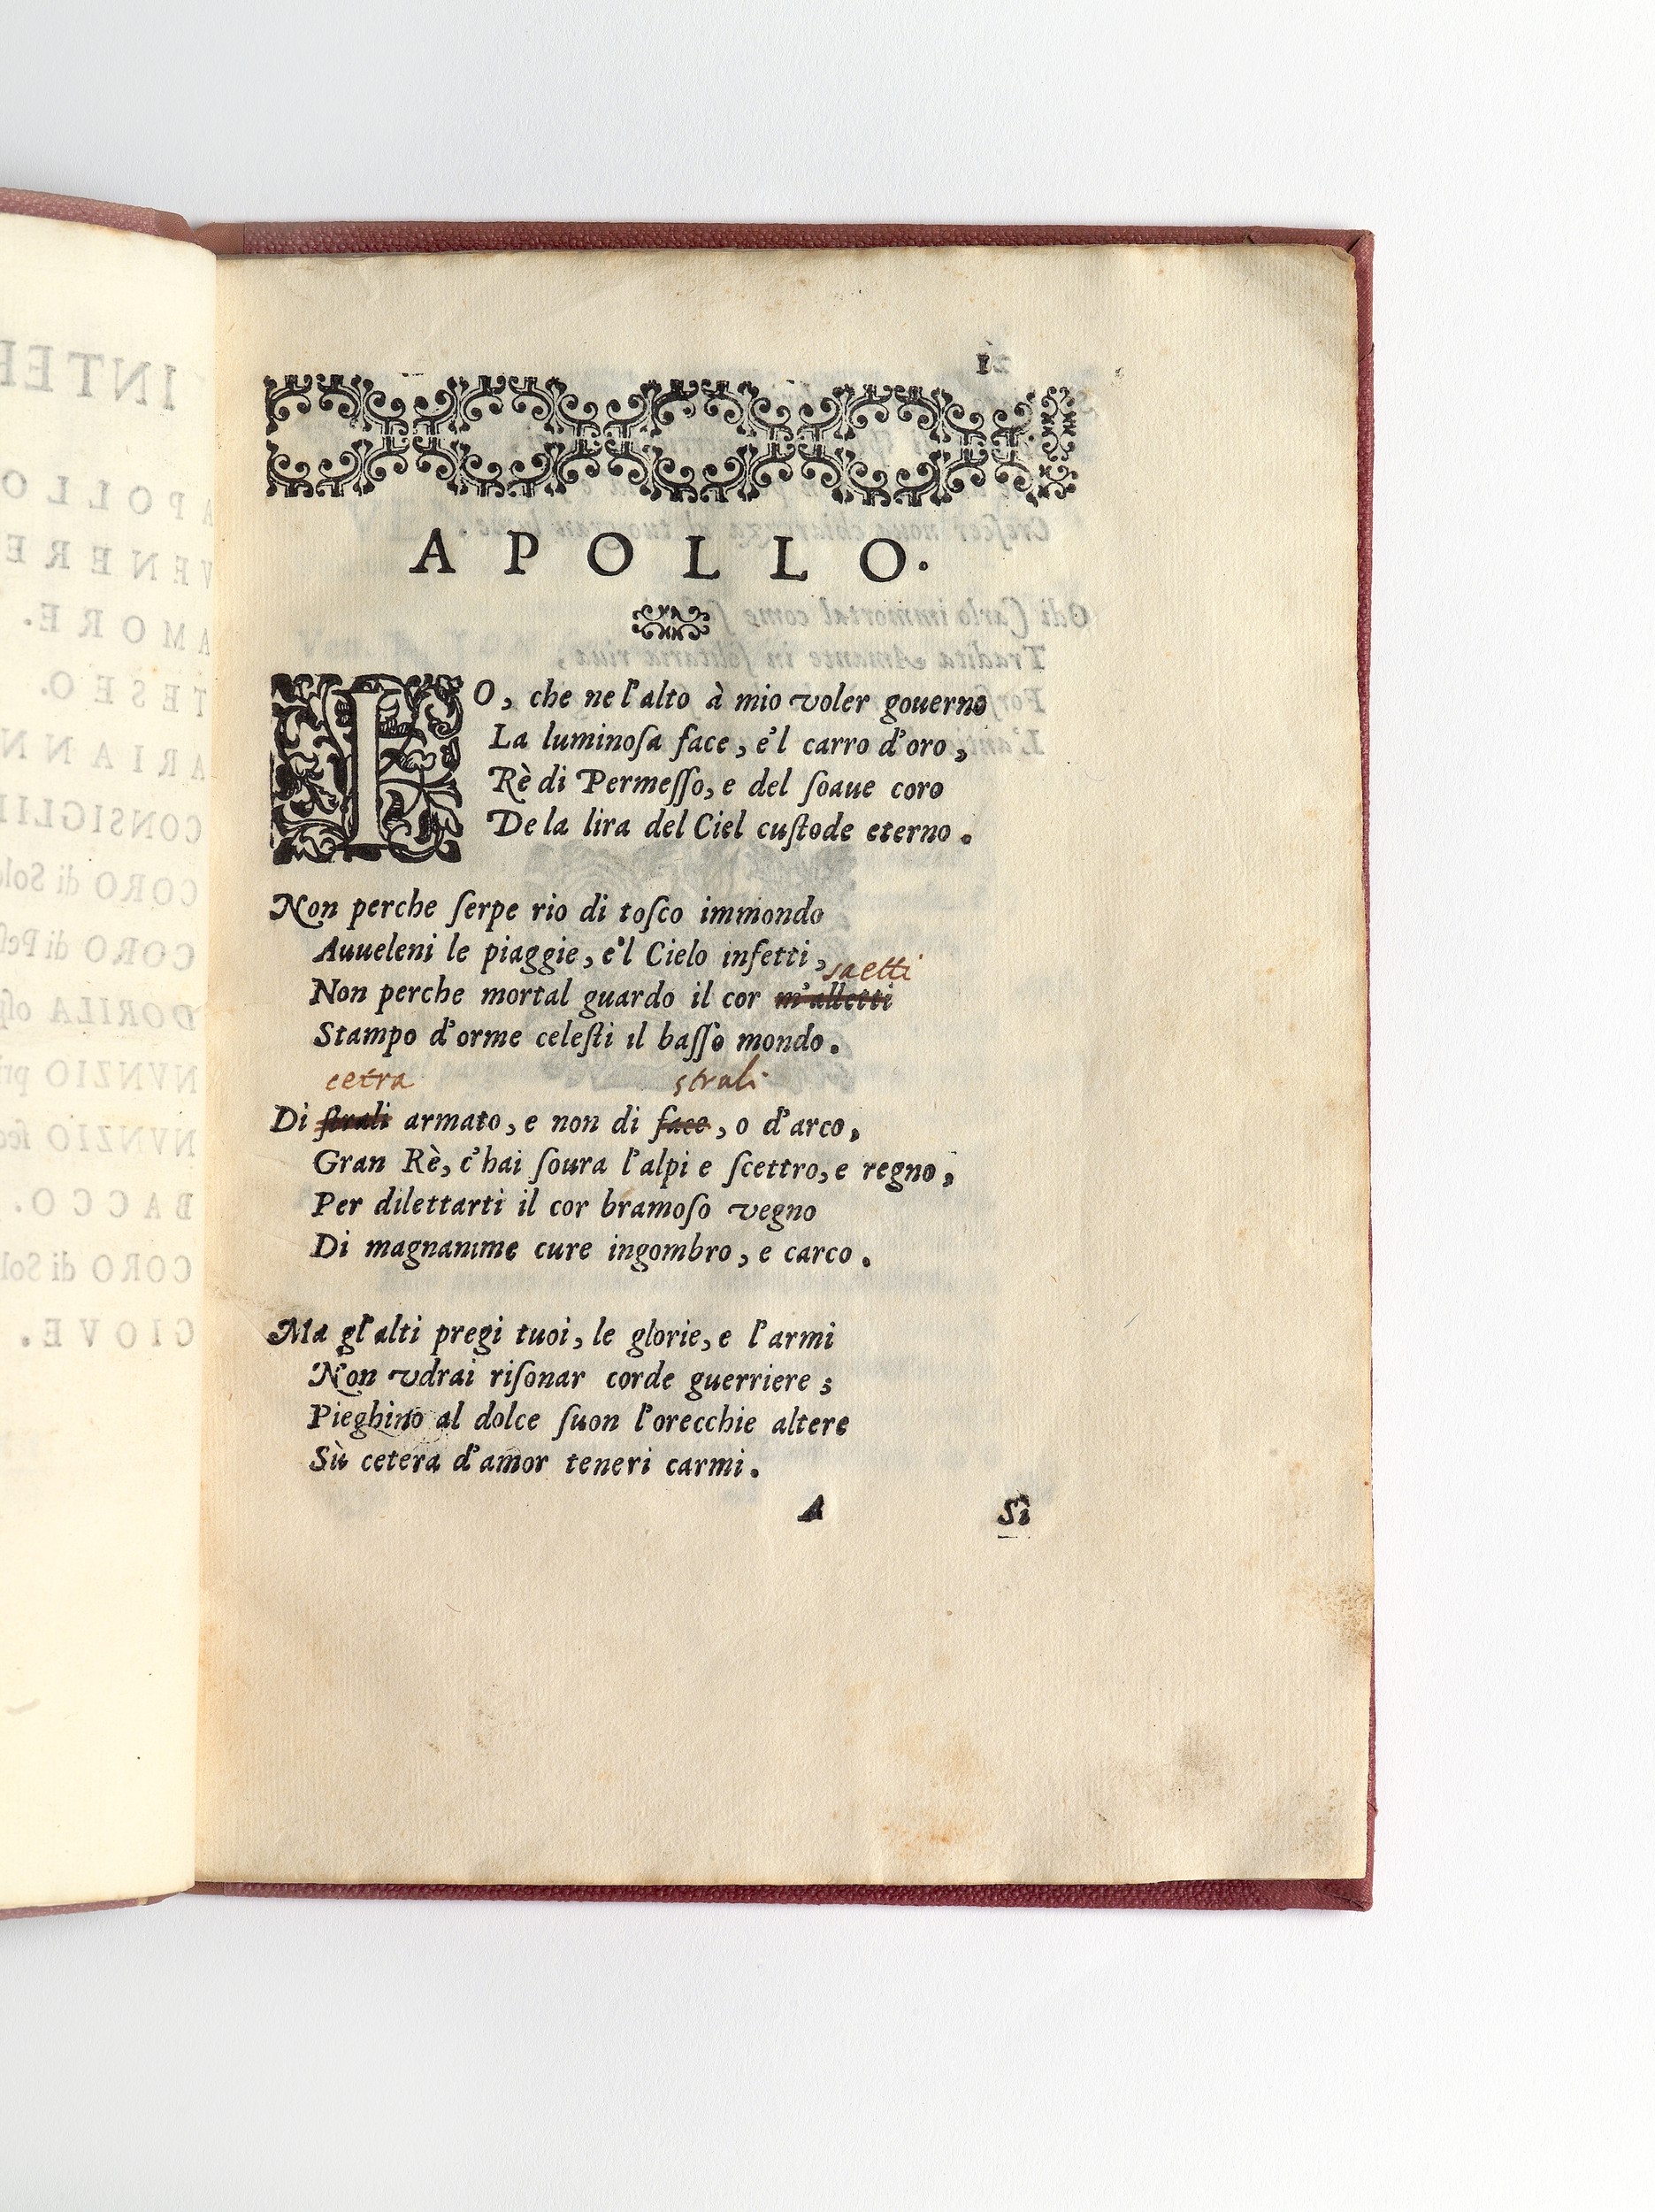 1
APOLLO.
IO, che ne l'alto à mio voler gouerno
La luminoſa face, e'l carro d'oro,
Rè di Permeſſo, e del ſoaue coro
De la lira del Ciel cuſtode eterno.
Non perche ſerpe rio di toſco immondo
Auueleni le piaggie, e'l Cielo infetti,
saetti
Non perche mortal guardo il cor m'alletti
Stampo d'orme celeſti il baſſo mondo.
cetra strali
Di ſtrali armato, e non di face, o d'arco,
Gran Rè, c'hai ſoura l'alpi e ſcettro, e regno,
Per dilettarti il cor bramoſo vegno
Di magnanime cure ingombro, e carco.
Ma gl'alti pregi tuoi, le glorie, e l'armi
Non vdrai riſonar corde guerriere;
Pieghino al dolce ſuon l'orecchie altere
Sù cetera d'amor teneri carmi.
A Sì